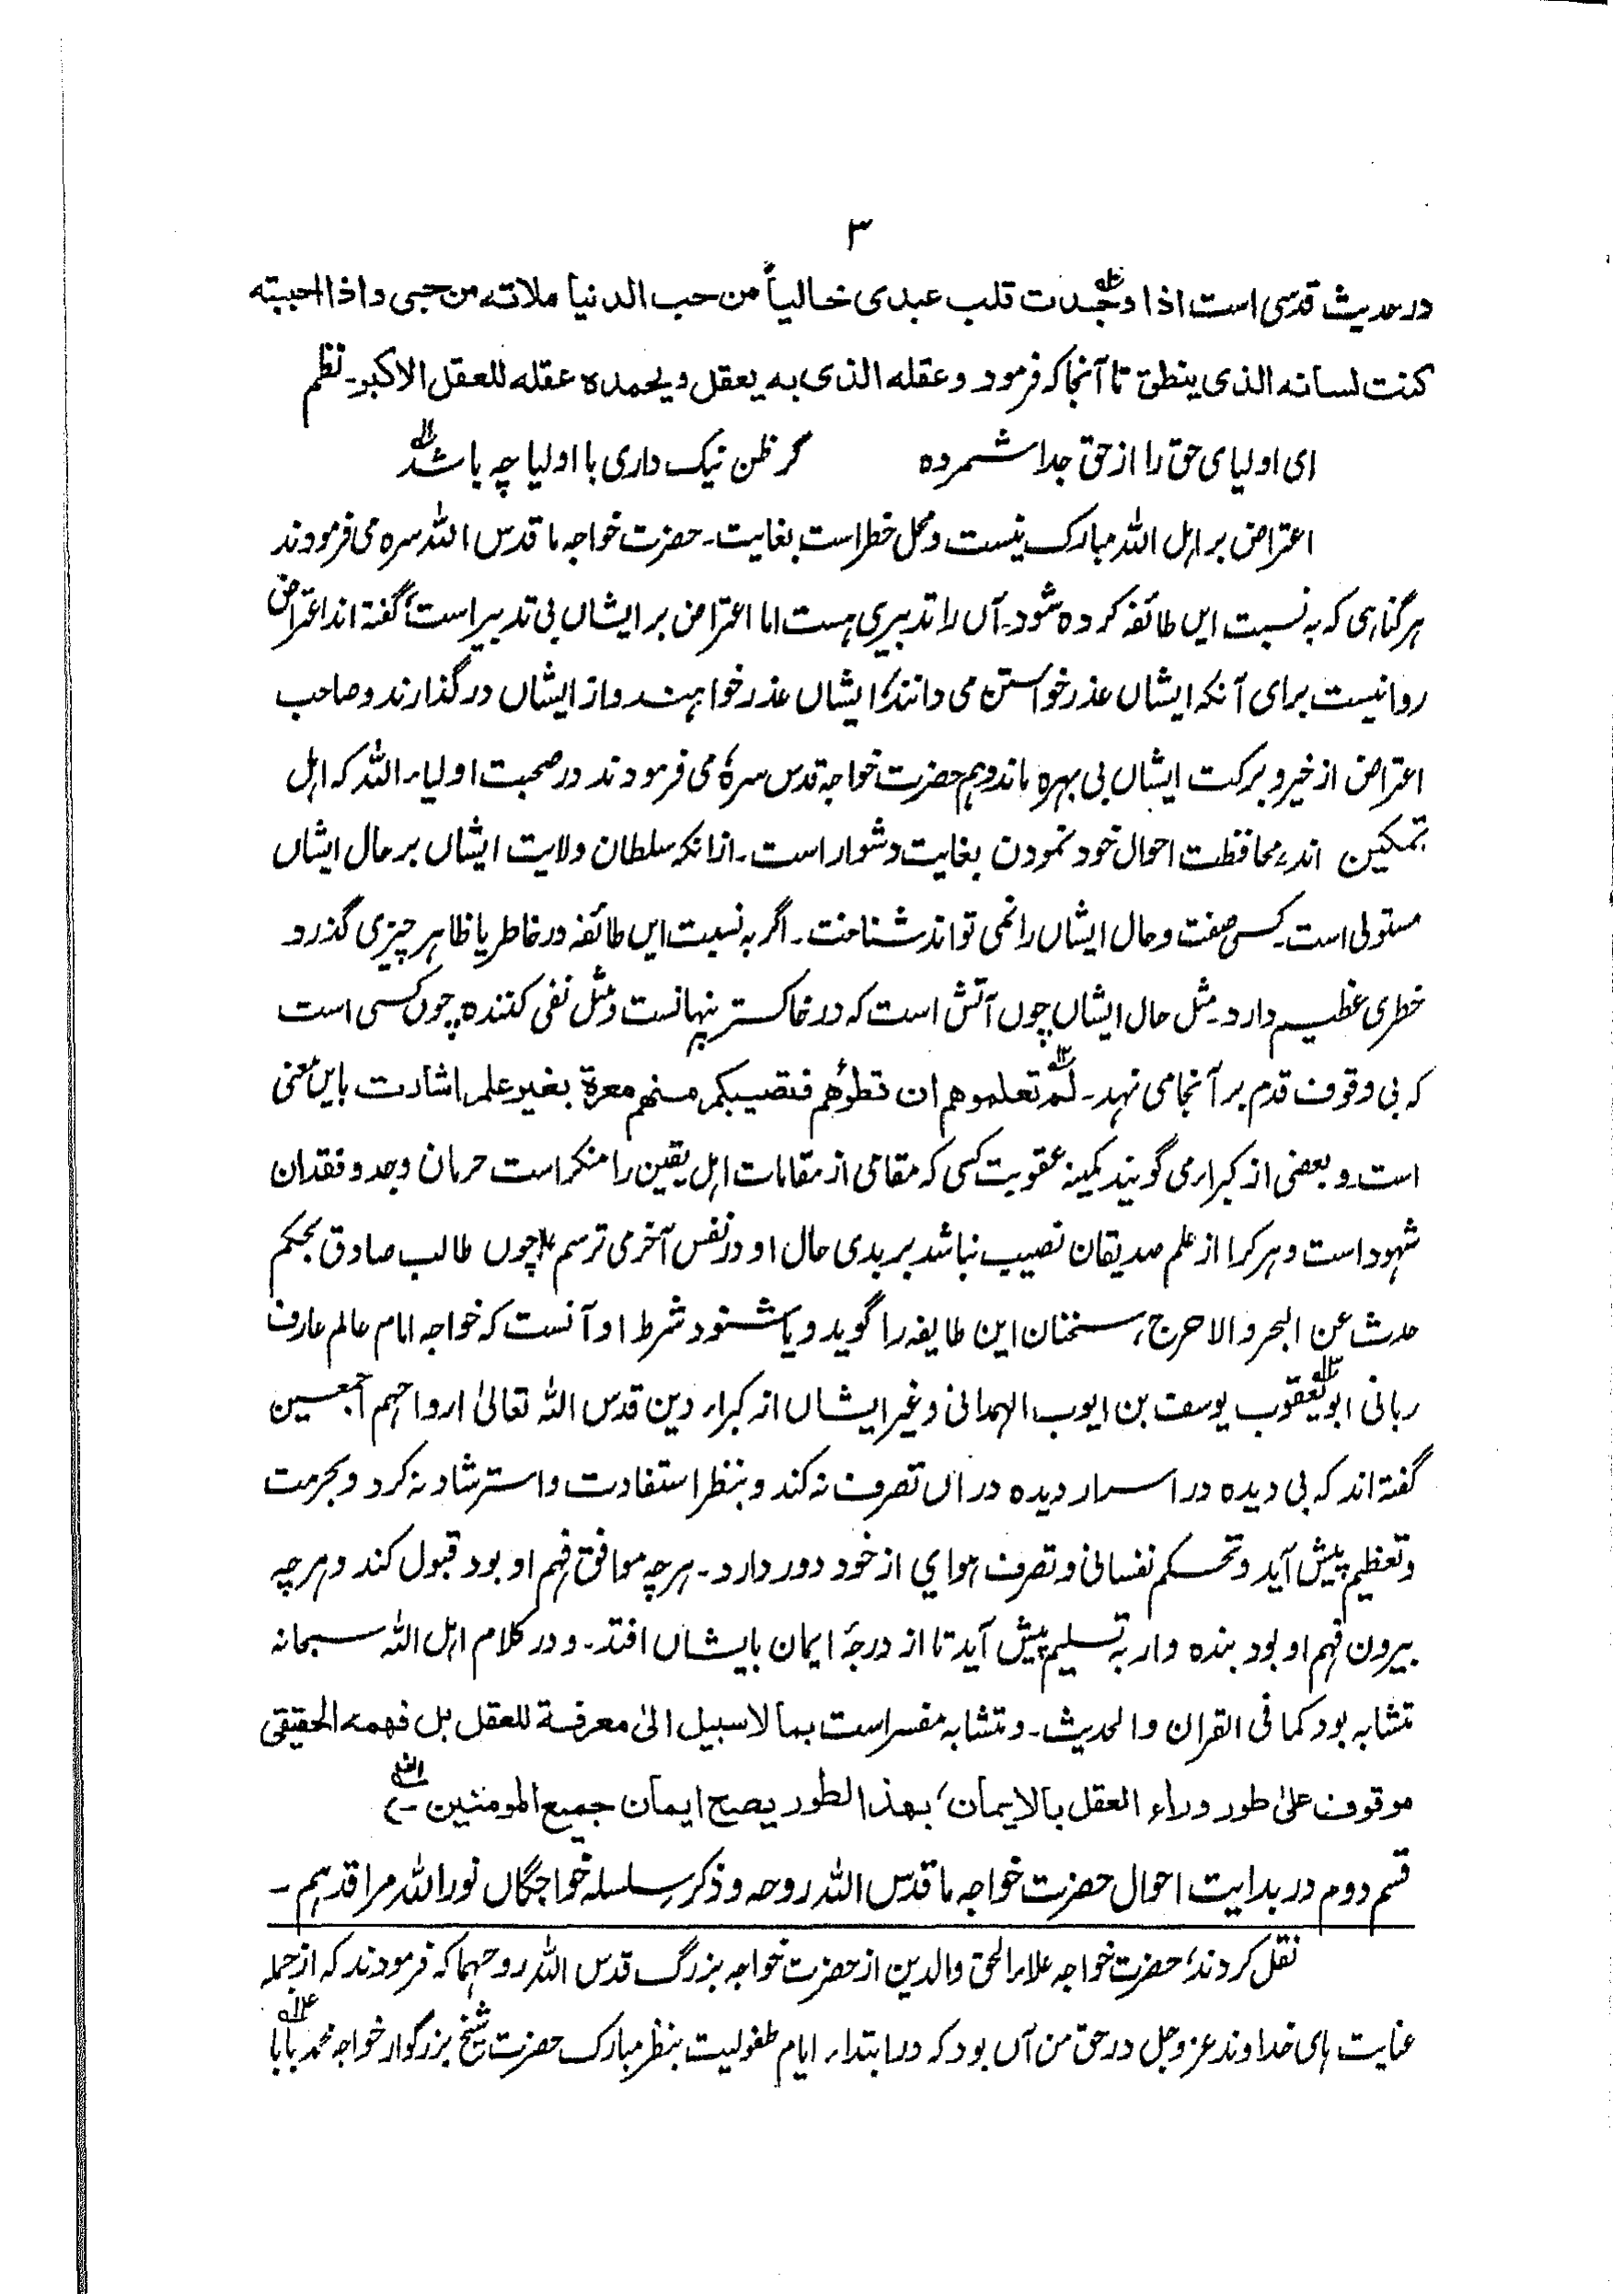 ۳
در حدیث قدسی است اذا وجدت قلب عبدی خالیاً من حب الدنیا ملاته من حبی و اذا احببته
کنت لسانه الذی ینطق تا آنجا که فرمود و عقله الذی به یعقل و یحمده عقله للعقل الاکبر۔ نظم
ای اولیای حق را از حق جدا شمرده گر ظن نیک داری با اولیا چه باشد
اعتراض بر اہل اللہ مبارک نیست و محل خطر است بغایت۔ حضرت خواجہ ما قدس اللہ سرہ می فرمودند
ہر گناہی کہ بہ نسبت ایں طائفہ کردہ شود۔ آں را تدبیری ہست اما اعتراض بر ایشاں بی تدبیر است گفتہ اند اعتراض
روا نیست برای آنکہ ایشاں عذر خواستن می دانند کہ ایشاں عذر خواہند و از ایشاں در گذارند و صاحب
اعتراض از خیر و برکت ایشاں بی بہرہ ماند و ہم حضرت خواجہ قدس سرہٗ می فرمودند در صحبت اولیاء اللہ کہ اہل
تمکین اند، محافظت احوال خود نمودن بغایت دشوار است۔ ازانکہ سلطان ولایت ایشاں بر حال ایشاں
مستولی است۔ کسی صفت و حال ایشاں را نمی تواند شناخت۔ اگر بہ نسبت ایں طائفہ در خاطر یا ظاہر چیزی گذرد
خطری عظیم دارد۔ مثل حال ایشاں چوں آتش است کہ در خاکستر پنہانست و مثل نفی کنندہ چوں کسی است
کہ بی وقوف قدم بر آنجا می نہد۔ لم تعلموهم ان تطؤهم فتصیبکم منهم معرة بغیر علم اشارت بایں معنی
است۔ و بعضی از کبراء می گویند کمینہ عقوبت کسی کہ مقامی از مقامات اہل یقین را منکر است حرمان وجد و فقدان
شہود است و ہر کرا از علم صدیقان نصیب نباشد بر بدی حال او در نفس آخر می ترسم چوں طالب صادق بحکم
حدث عن البحر و الا حرج، سخنان این طایفہ را گوید و یا شنود شرط او آنست کہ خواجہ امام عالم عارف
ربانی ابو یعقوب یوسف بن ایوب الہمدانی و غیر ایشاں از کبراء دین قدس اللہ تعالیٰ ارواحہم اجمعین
گفتہ اند کہ بی دیدہ در اسرار دیدہ دراں تصرف نہ کند و بنظر استفادت و استرشاد نہ کرد و بحرمت
و تعظیم پیش آید و تحکم نفسانی و تصرف ہوایی از خود دور دارد۔ ہر چہ موافق فہم او بود قبول کند و ہر چہ
بیرون فہم او بود بندہ وار بہ تسلیم پیش آید تا از درجۂ ایمان بایشاں افتد۔ و در کلام اہل اللہ سبحانہ
متشابہ بود کما فی القران و الحدیث۔ و متشابہ مفسر است بما لا سبیل الیٰ معرفة للعقل بل فهمه الحقیقی
موقوف علیٰ طور وراء العقل بالایمان، بهذا الطور یصح ایمان جمیع المومنین۔
قسم دوم در بدایت احوال حضرت خواجہ ما قدس اللہ روحہ و ذکر سلسلہ خواجگاں نور اللہ مراقدہم۔
نقل کردند، حضرت خواجہ علاء الحق والدین از حضرت خواجہ بزرگ قدس اللہ روحہما کہ فرمودند کہ از جملہ
عنایت ہای خداوند عزوجل در حق من آں بود کہ در ابتداء ایام طفولیت بنظر مبارک حضرت شیخ بزرگوار خواجہ محمد بابا